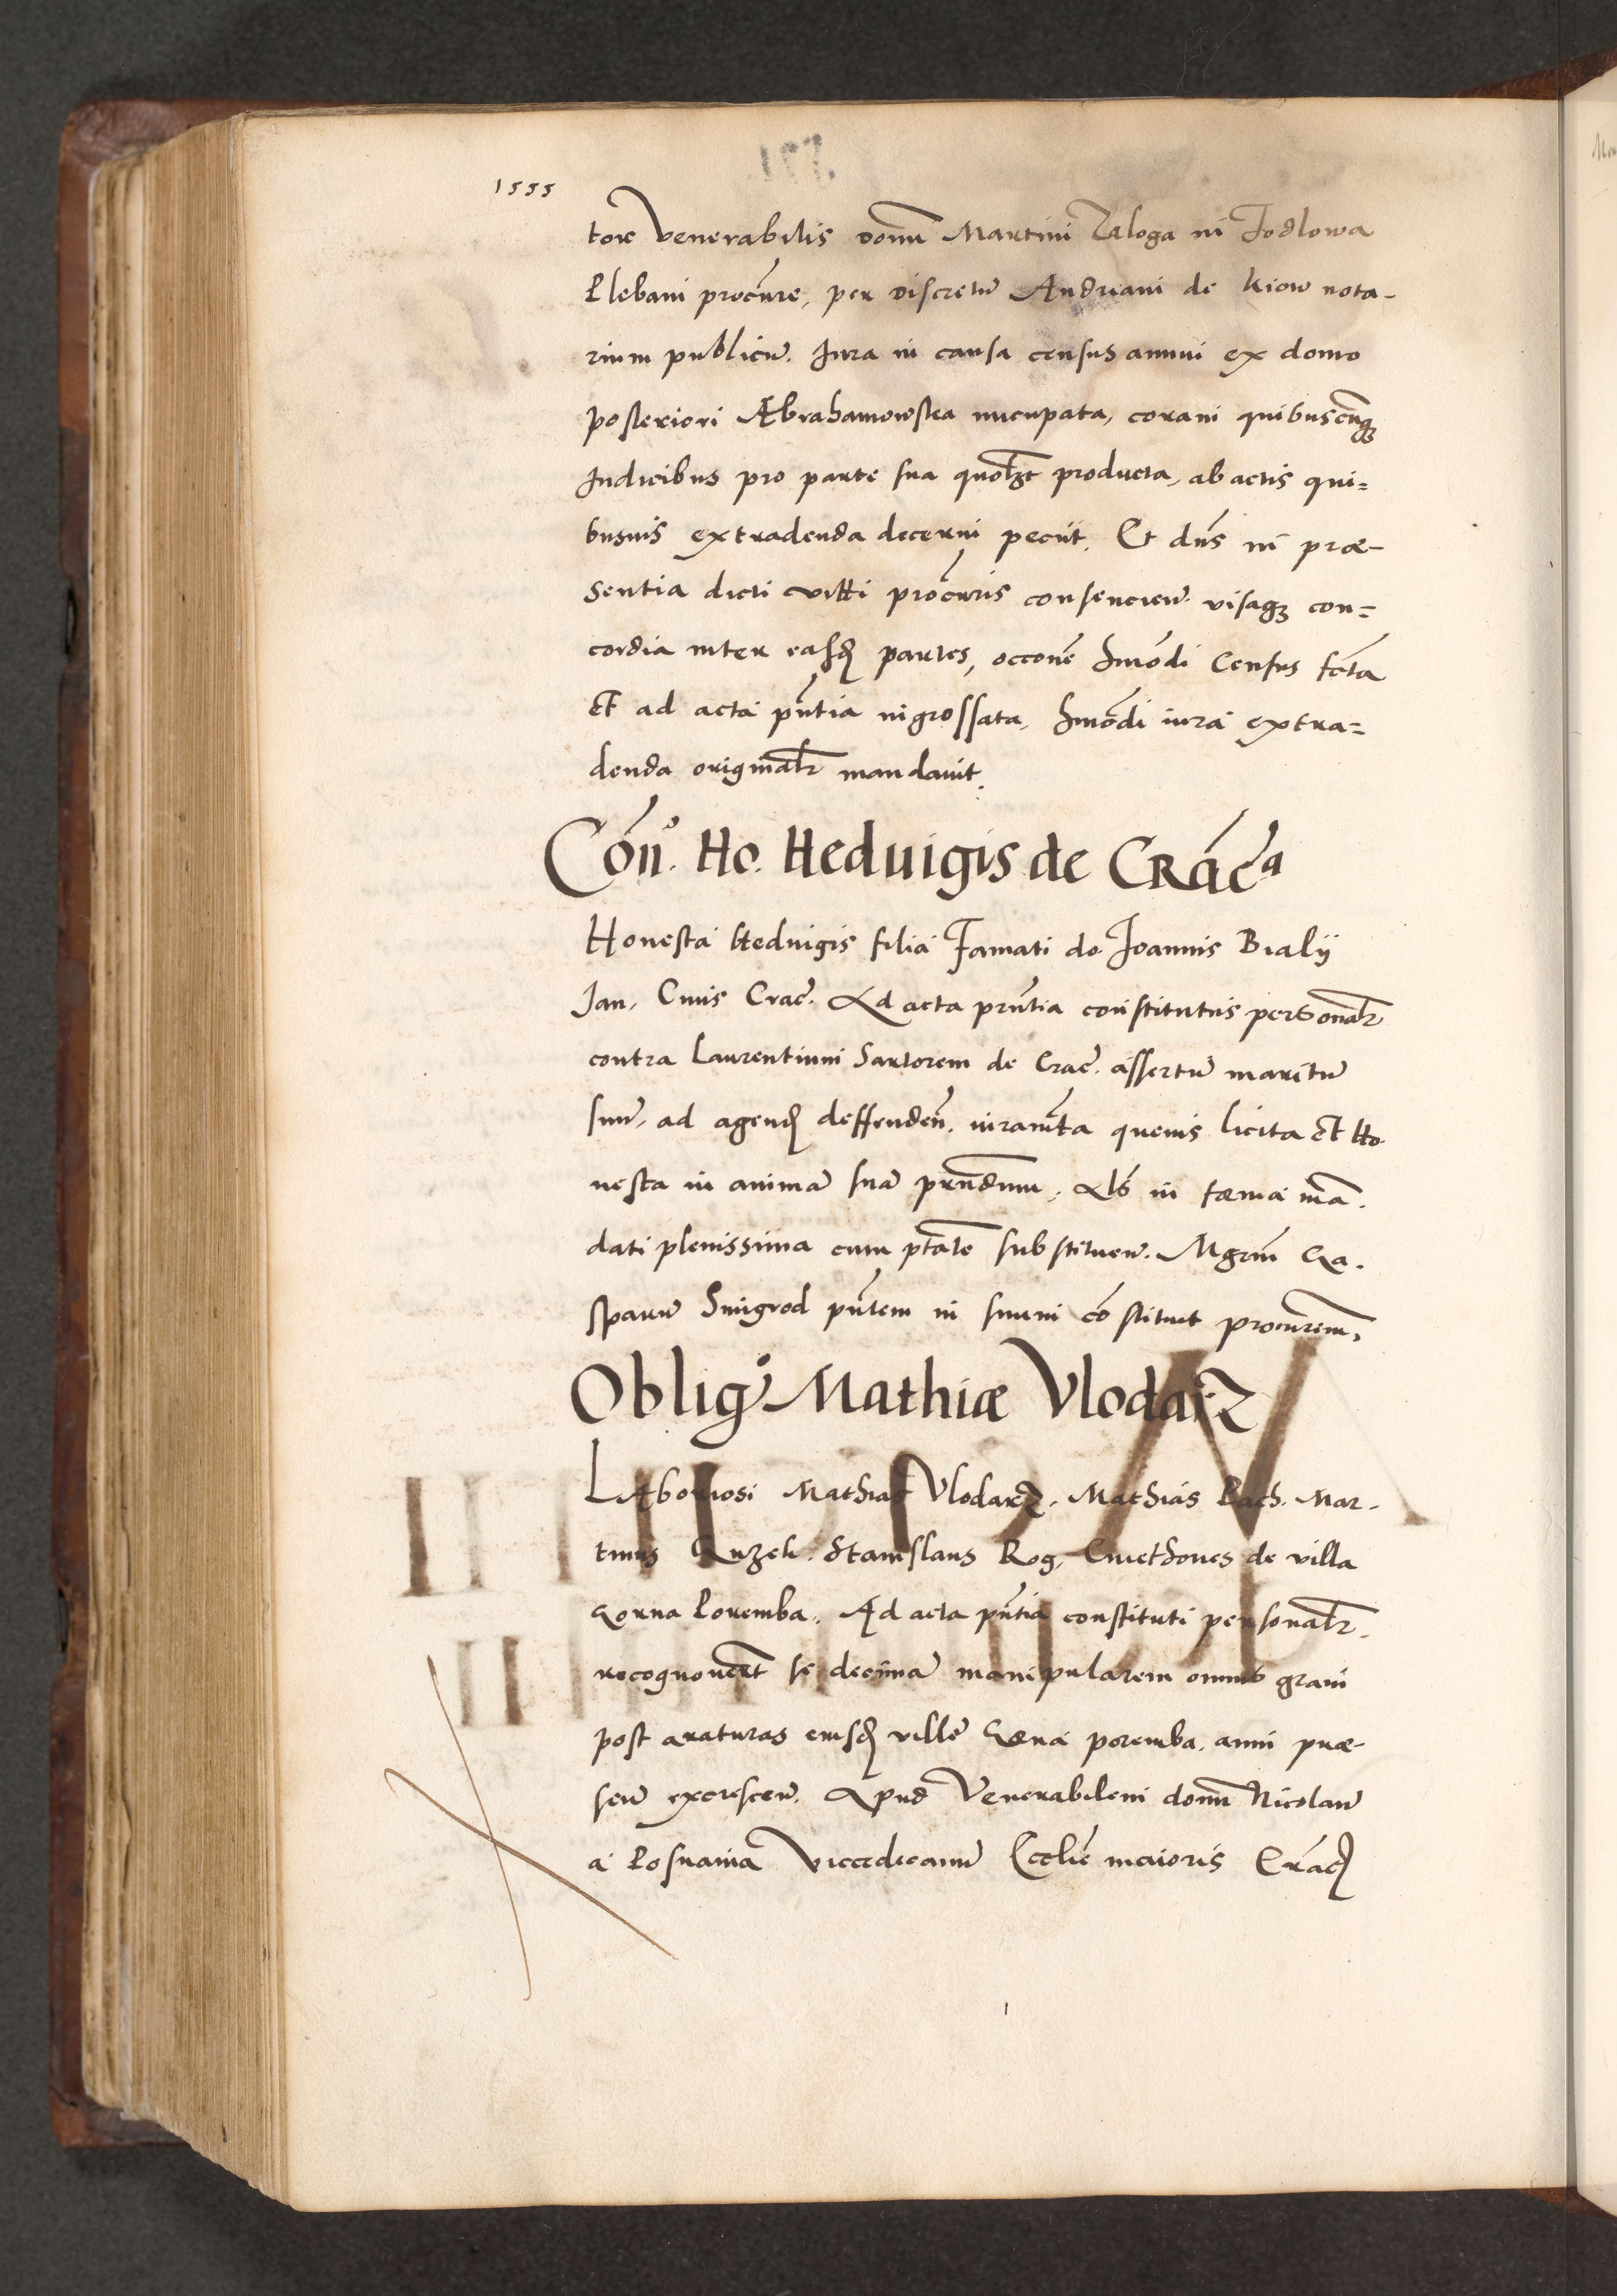 1555
tore Venerabilis domini Martini Zaloga in Jodlowa
Plebani procure, per discretum Andream de kiow nota-
rium publicum. Jura in causa census annui ex domo
posteriori Abrahamowska nuncupata, coram quibuscunq
Iudicibus pro parte sua quolibet producta, ab actis qui=
busuis extradenda decerni peciit. Et dns in præ-
sentia dicti procuris consencien. visaq con=
cordia inter easd partes, occone hmodi Census fcta
et ad acta pntia ingrossata, hmodi iura extra=
denda originalr mandauit.
Con. Ho. Heduigis de Crac
Honesta Heduigis filia Famati do. Joannis Bialy
Jan, Ciuis Crac. Ad acta prntia constitutus personalr
contra Laurentium Sartorem de Crac. assertum maritum
suum, ad agend deffenden. iuramta queuis licita et Ho
nesta in animam suam prndum. Als in forma man.
dati plenissima cum ptate substituen. Mgrum Ga.
sparum Smigrod pntem in suum constituit procurem,
Oblig Mathiæ Vlodarz
LAboriosi Mathias Vlodarz. Mathias Pach. Mar-
tinus Kuzel. Stanislaus Rog, Cmethones de villa
Gorna Poremba. Ad acta pntia constituti personalr.
recognouert se decimam manipularem omnis grani
post araturas eiusd ville Gorna poremba, anni præ-
sen excrescen. Apud Venerabilem domum Nicolaum
a Posnania Vicedecanum Ecclie maioris Crac